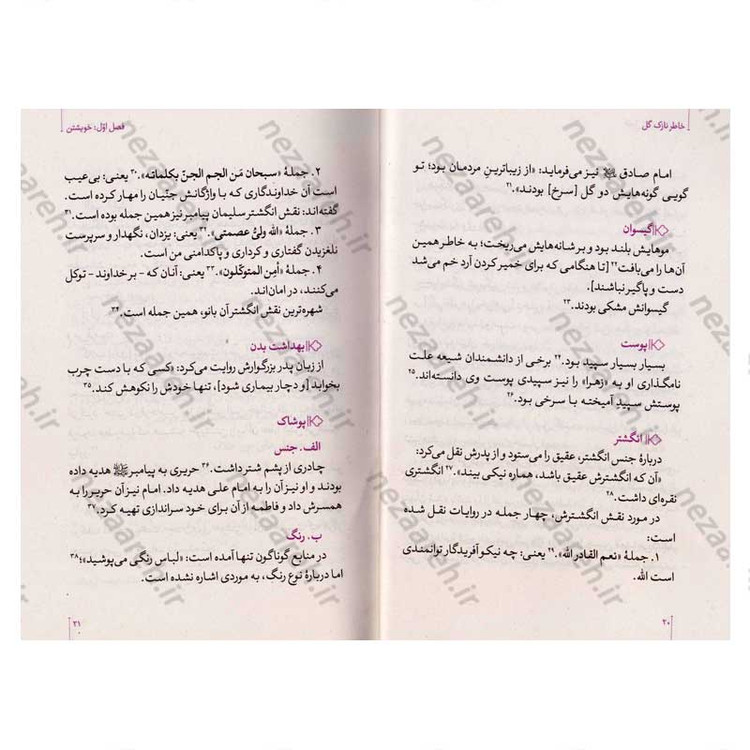 خاطر نازک گل
امام صادق ﷺ نیز می‌فرماید: «از زیباترینِ مردمان بود؛ تو
گویی گونه‌هایش دو گل [سرخ] بودند».۲۱
گیسوان
موهایش بلند بود و بر شانه‌هایش می‌ریخت؛ به خاطر همین
آن‌ها را می‌بافت۲۲ [تا هنگامی که برای خمیر کردن آرد خم می‌شد
دست و پاگیر نباشند].
گیسوانش مشکی بودند.۲۳
پوست
بسیار بسیار سپید بود.۲۴ برخی از دانشمندان شیعه علت
نامگذاری او به «زهرا» را نیز سپیدی پوست وی دانسته‌اند.۲۵
پوستش سپیدِ آمیخته با سرخی بود.۲۶
انگشتر
دربارهٔ جنس انگشتر، عقیق را می‌ستود و از پدرش نقل می‌کرد:
«آن که انگشترش عقیق باشد، هماره نیکی بیند».۲۷ انگشتری
نقره‌ای داشت.۲۸
در مورد نقش انگشترش، چهار جمله در روایات نقل شده
است:
۱. جملهٔ «نعم القادر الله».۲۹ یعنی: چه نیکو آفریدگار توانمندی
است الله.
۲۰
فصل اوّل: خویشتن
۲. جملهٔ «سبحان مَن الجم الجنّ بکلماته».۳۰ یعنی: بی‌عیب
است آن خداوندگاری که با واژگانش جنّیان را مهار کرده است.
گفته‌اند: نقش انگشتر سلیمان پیامبر نیز همین جمله بوده است.۳۱
۳. جملهٔ «الله ولیّ عصمتی».۳۲ یعنی: یزدان، نگهدار و سرپرست
نلغزیدن گفتاری و کرداری و پاکدامنی من است.
۴. جملهٔ «أمِن المتوکّلون».۳۳ یعنی: آنان که - بر خداوند - توکل
می‌کنند، در امان‌اند.
شهره‌ترین نقش انگشتر آن بانو، همین جمله است.۳۴
بهداشت بدن
از زبان پدر بزرگوارش روایت می‌کرد: «کسی که با دست چرب
بخوابد [و دچار بیماری شود]، تنها خودش را نکوهش کند.۳۵
پوشاک
الف. جنس
چادری از پشم شتر داشت.۳۶ حریری به پیامبر ﷺ هدیه داده
بودند و او نیز آن را به امام علی هدیه داد. امام نیز آن حریر را به
همسرش داد و فاطمه از آن برای خود سراندازی تهیه کرد.۳۷
ب. رنگ
در منابع گوناگون تنها آمده است: «لباس رنگی می‌پوشید»؛۳۸
اما دربارهٔ نوع رنگ، به موردی اشاره نشده است.
۲۱
nezaareh.ir